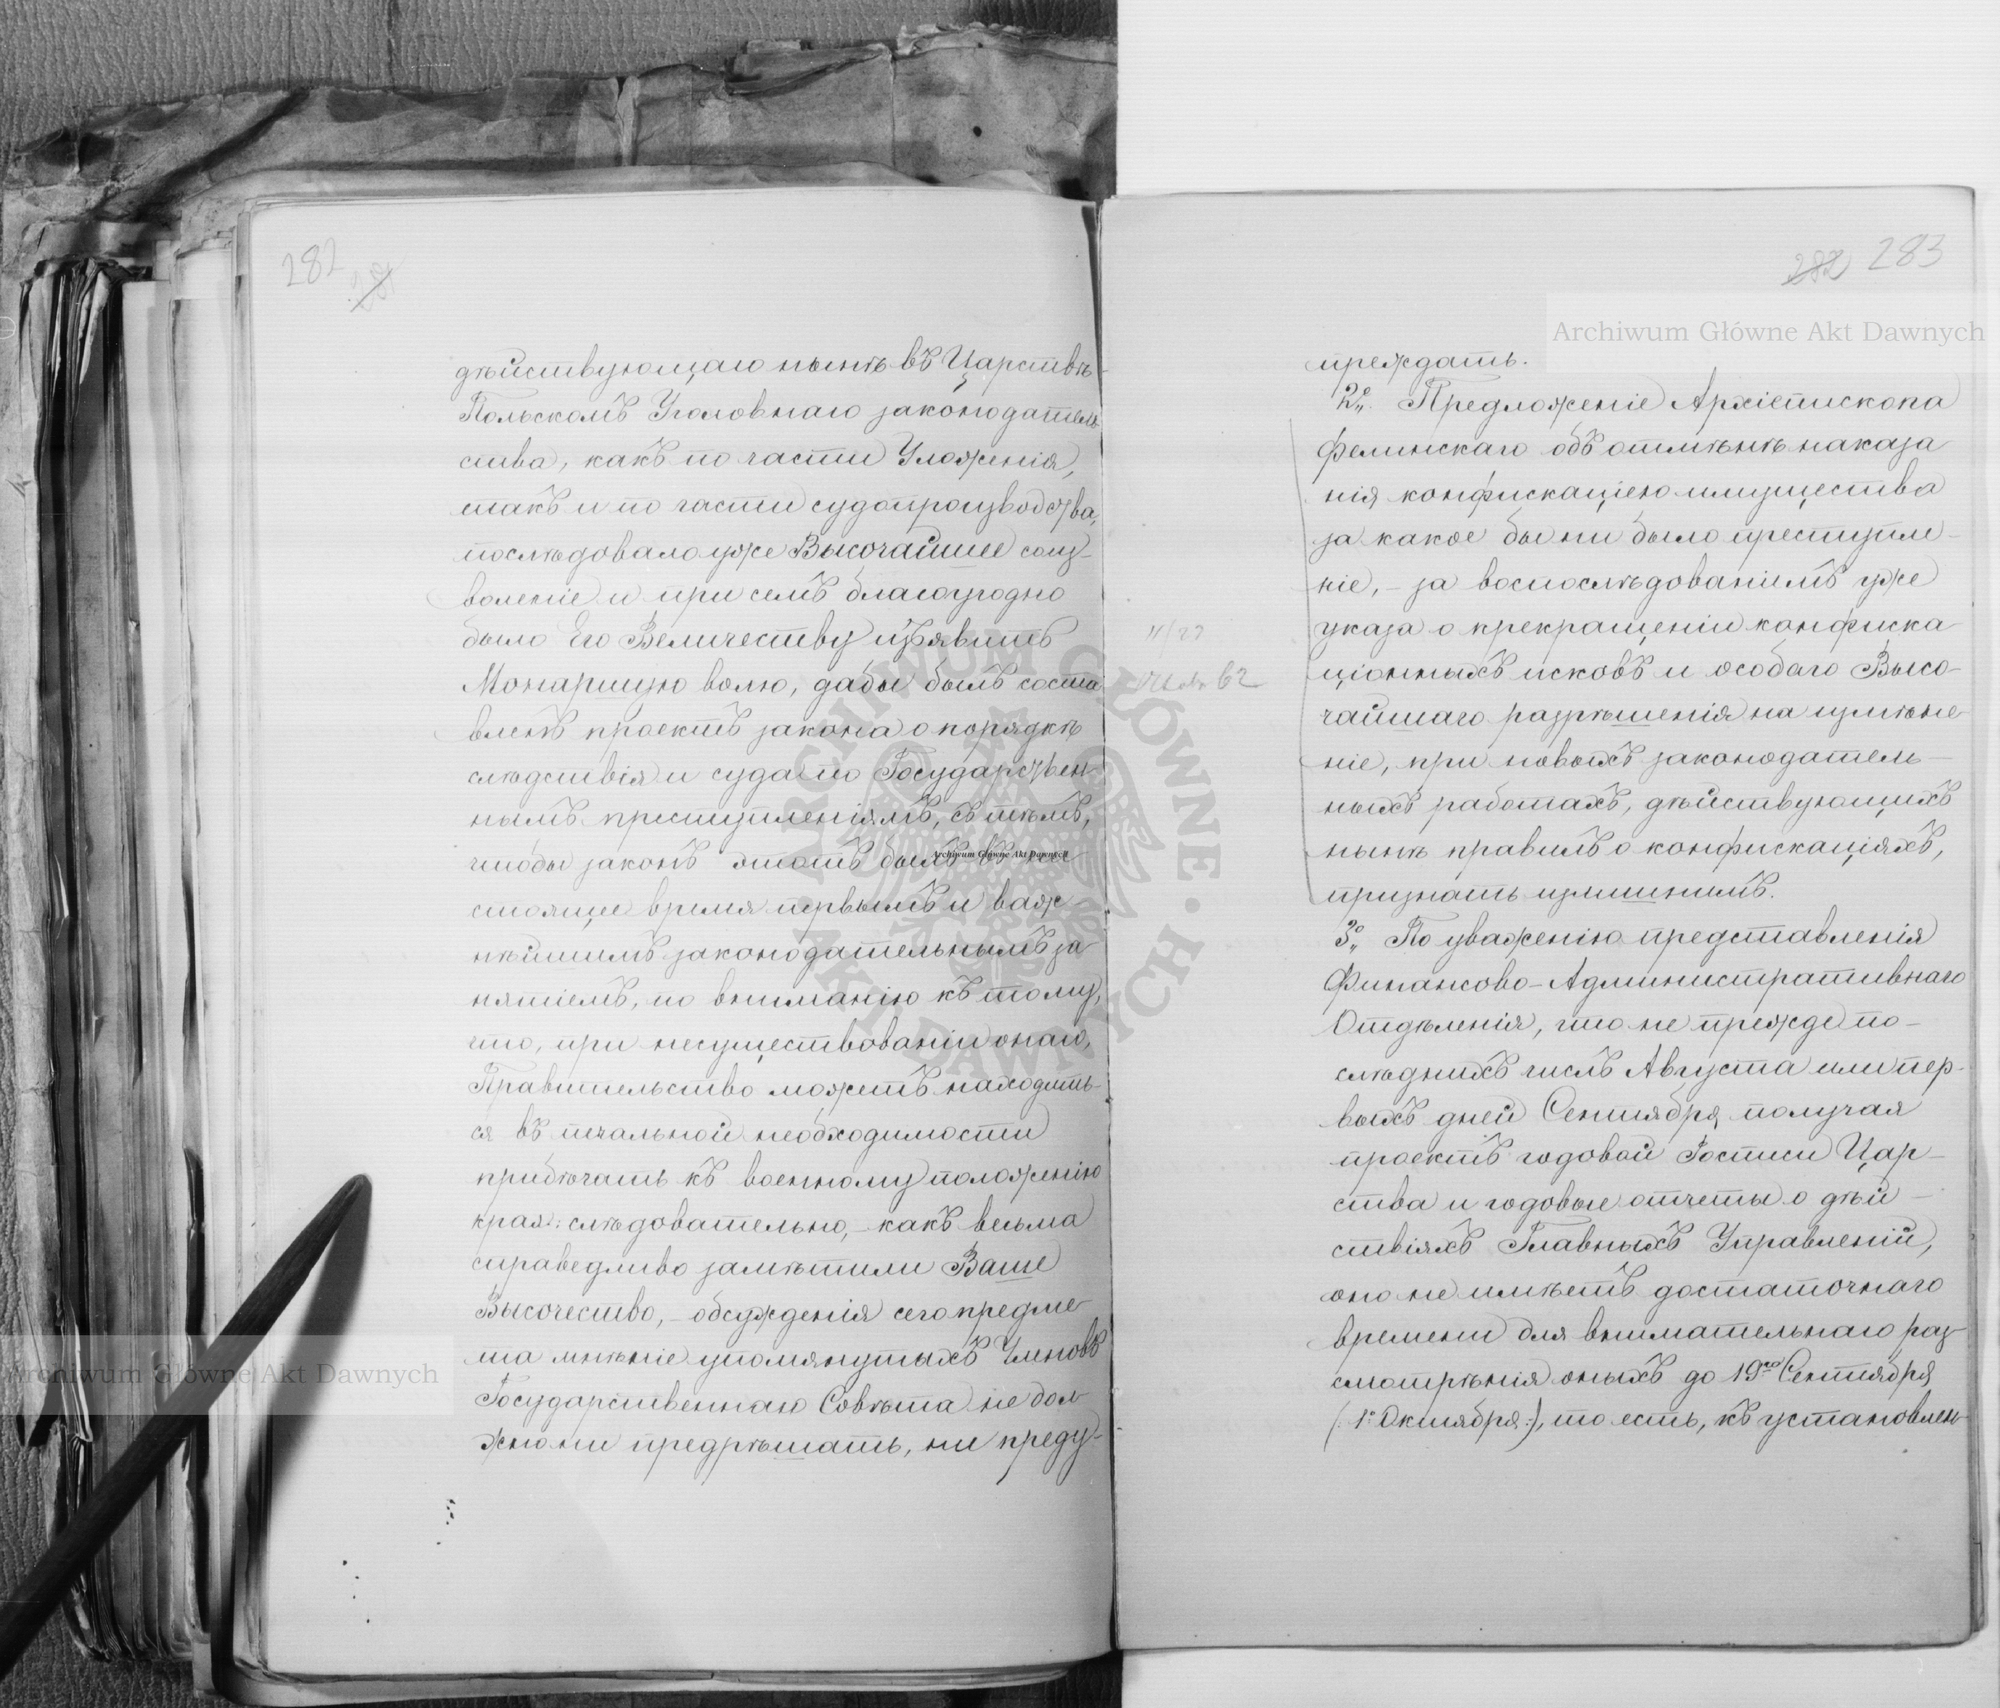 282
281
дѣйствующаго нынѣ въ Царствѣ
Польскомъ Уголовнаго законодатель
ства, какъ по части Уложенія,
такъ и по части судопроизводства,
послѣдовало уже Высочайшее соиз-
воленіе и при семъ благоугодно
было Его Величеству изъявить
Монаршую волю, дабы былъ соста
вленъ проектъ закона о порядкѣ
слѣдствія и суда по Государствен-
нымъ преступленіямъ, съ тѣмъ,
чтобы законъ этотъ былъ въ на
стоящее время первымъ и важ
нѣйшимъ законодательнымъ за
нятіемъ, по вниманію къ тому,
что, при несуществованіи онаго,
Правительство можетъ находить-
ся въ печальной необходимости
прибѣгать къ военному положенію
края: слѣдовательно, - какъ весьма
справедливо замѣтили Ваше
Высочество, - обсужденія сего предме
та мнѣніе упомянутыхъ Членовъ
Государственнаго Совѣта не дол
жно ни предрѣшать, ни преду-
282 283
преждать.
2º. Предложеніе Архіепископа
Фелинскаго объ отмѣнѣ наказа
нія конфискаціею имущества
за какое бы ни было преступле-
ніе, - за воспослѣдованіемъ уже
указа о прекращеніи конфиска
ціонныхъ исковъ и особаго Высо-
чайшаго разрѣшенія на измѣне
ніе, при новыхъ законодатель-
ныхъ работахъ, дѣйствующихъ
нынѣ правилъ о конфискаціяхъ,
признать излишнимъ.
3º. По уваженію представленія
Финансово-Административнаго
Отдѣленія, что не прежде по-
слѣднихъ числъ Августа или пер-
выхъ дней Сентября, получая
проектъ годовой Росписи Цар-
ства и годовые отчеты о дѣй-
ствіяхъ Главныхъ Управленій,
оно не имѣетъ достаточнаго
времени для внимательнаго раз
смотрѣнія оныхъ до 19го Сентября
(: 1º Октября :), то есть, къ установлен
11/23
62
Archiwum Główne Akt Dawnych
Archiwum Główne Akt Dawnych
Archiwum Główne Akt Dawnych
ARCHIWUM GŁÓWNE AKT DAWNYCH